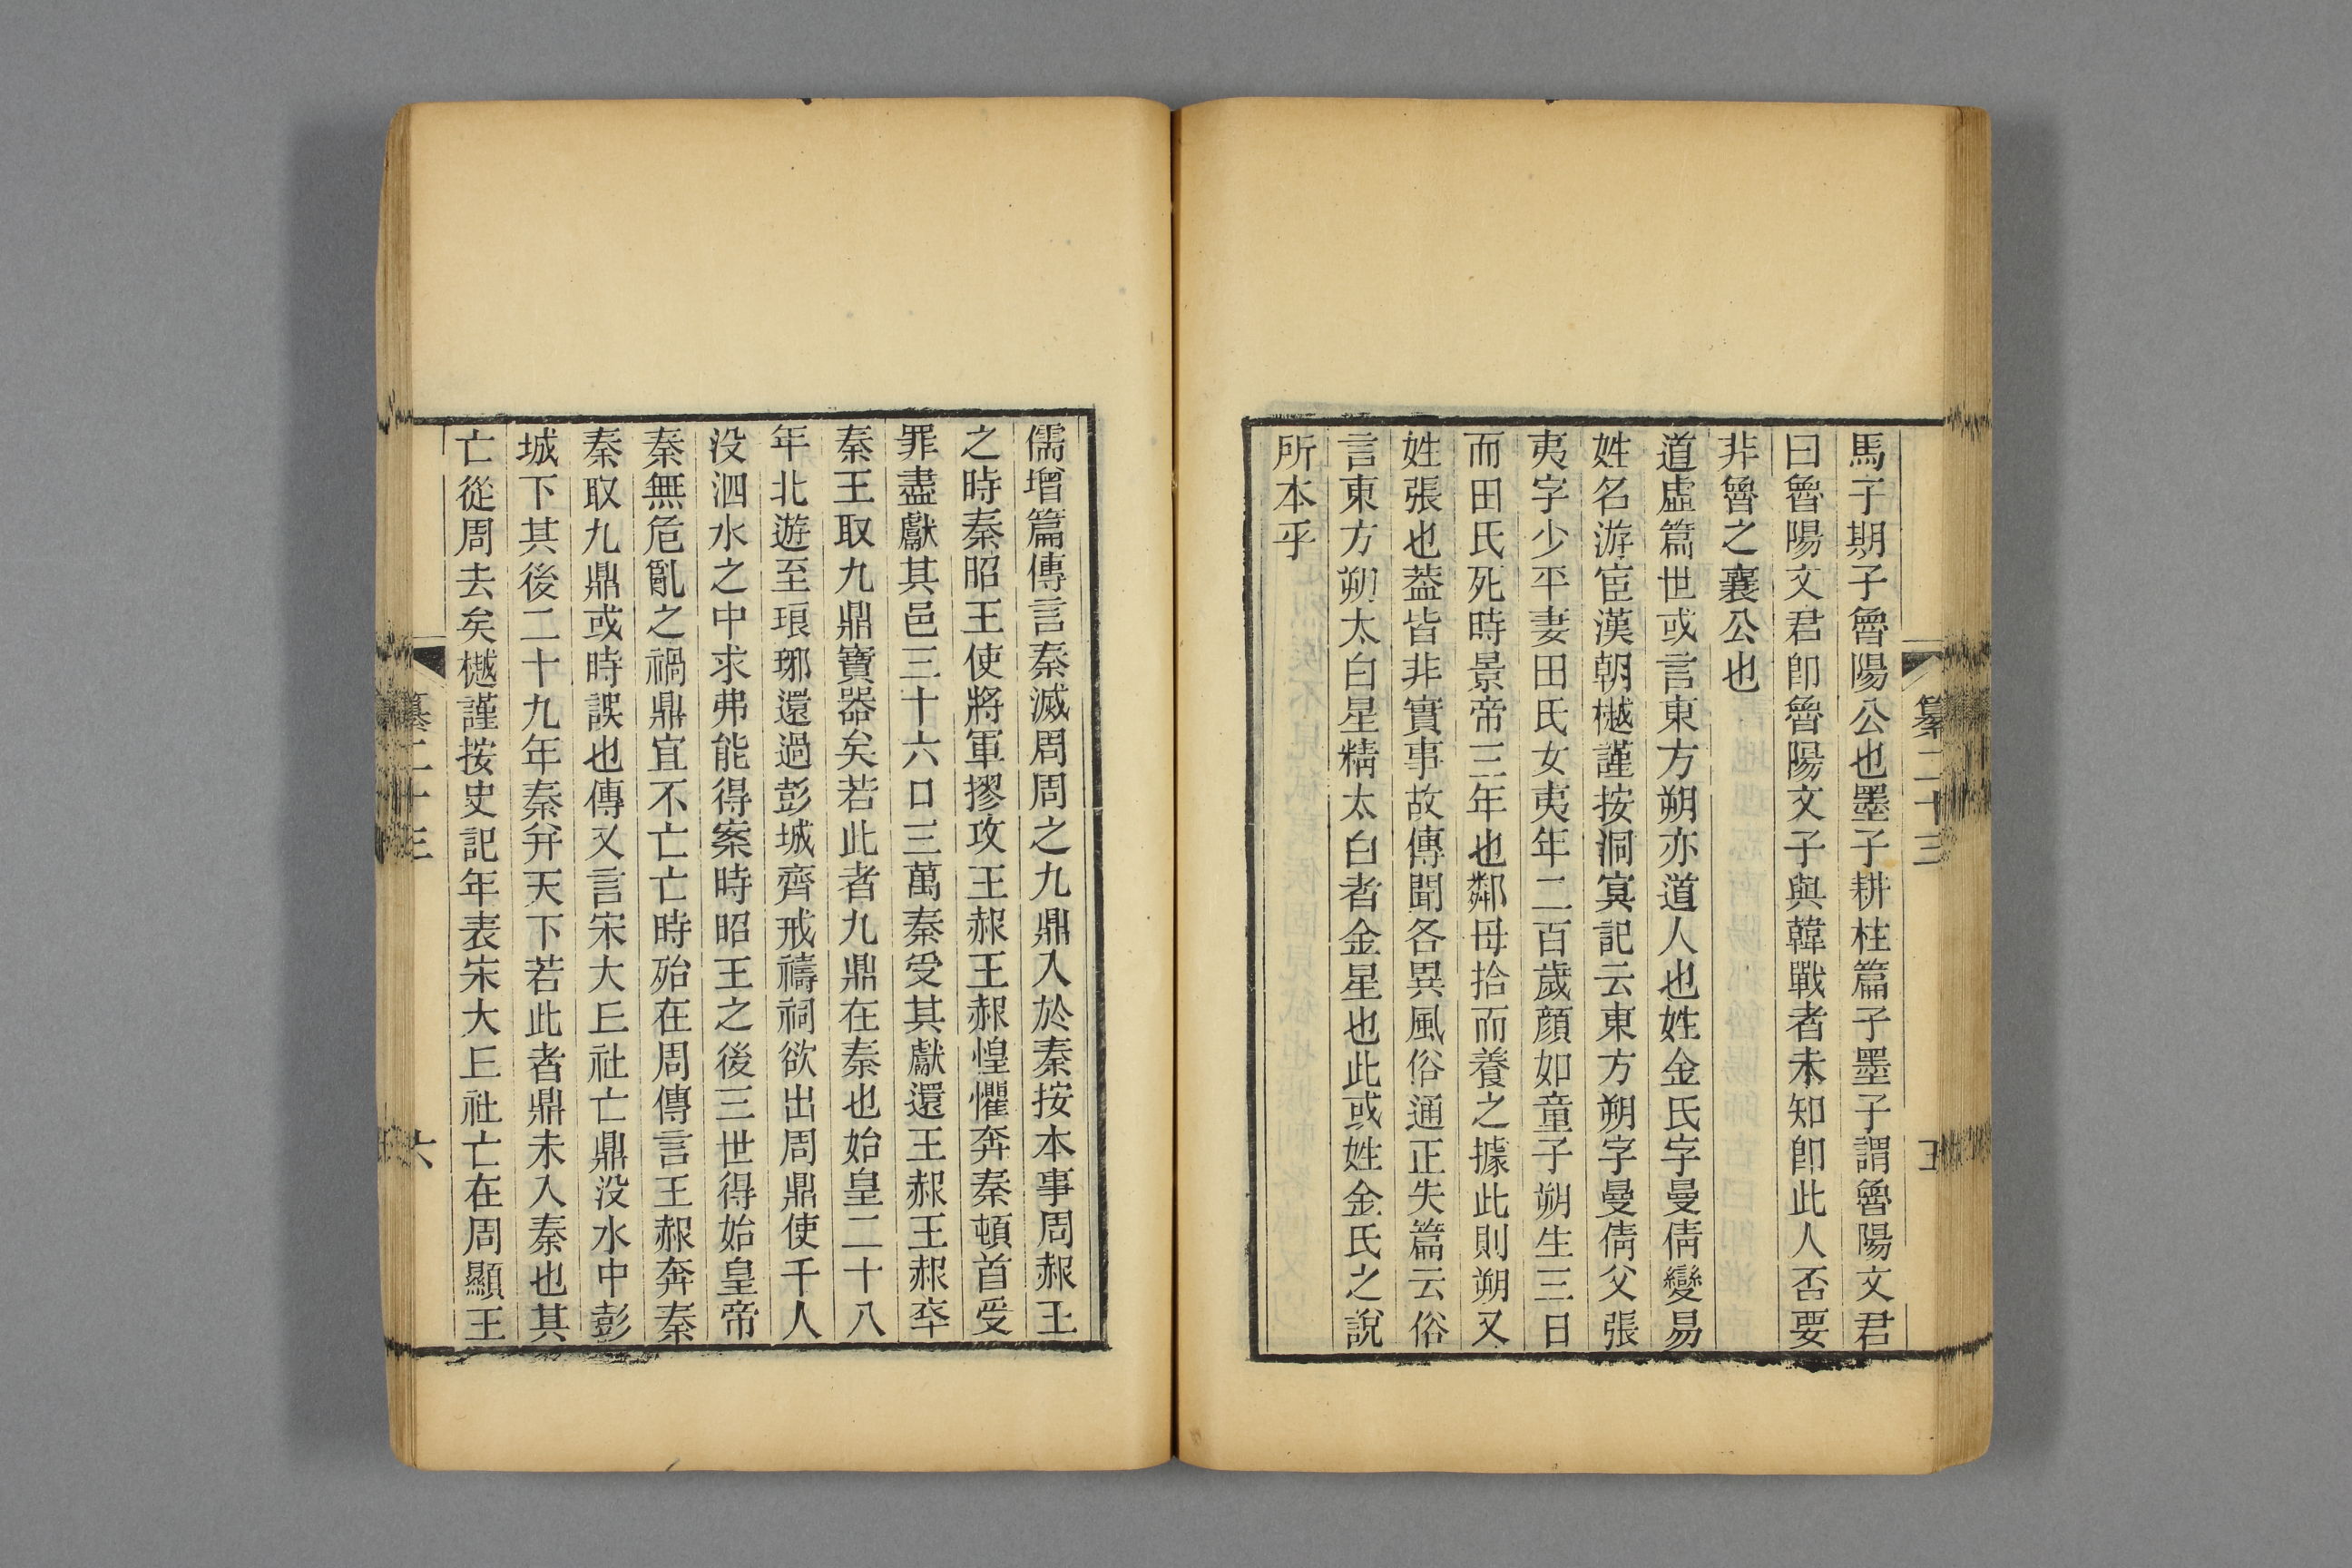 纂二十三
五
馬子期子魯陽公也墨子耕柱篇子墨子謂魯陽文君
曰魯陽文君卽魯陽文子與韓戰者未知卽此人否要
非魯之襄公也
道虛篇世或言東方朔亦道人也姓金氏字曼倩變易
姓名游宦漢朝樾謹按洞冥記云東方朔字曼倩父張
夷字少平妻田氏女夷年二百歲顏如童子朔生三日
而田氏死時景帝三年也鄰母拾而養之據此則朔又
姓張也葢皆非實事故傳聞各異風俗通正失篇云俗
言東方朔太白星精太白者金星也此或姓金氏之說
所本乎
儒增篇傳言秦滅周周之九鼎入於秦按本事周赧王
之時秦昭王使將軍摎攻王赧王赧惶懼奔秦頓首受
罪盡獻其邑三十六口三萬秦受其獻還王赧王赧卒
秦王取九鼎寶器矣若此者九鼎在秦也始皇二十八
年北遊至琅琊還過彭城齊戒禱祠欲出周鼎使千人
没泗水之中求弗能得案時昭王之後三世得始皇帝
秦無危亂之禍鼎宜不亡亡時殆在周傳言王赧奔秦
秦取九鼎或時誤也傳又言宋大丘社亡鼎没水中彭
城下其後二十九年秦幷天下若此者鼎未入秦也其
亡從周去矣樾謹按史記年表宋大丘社亡在周顯王
纂二十三
六